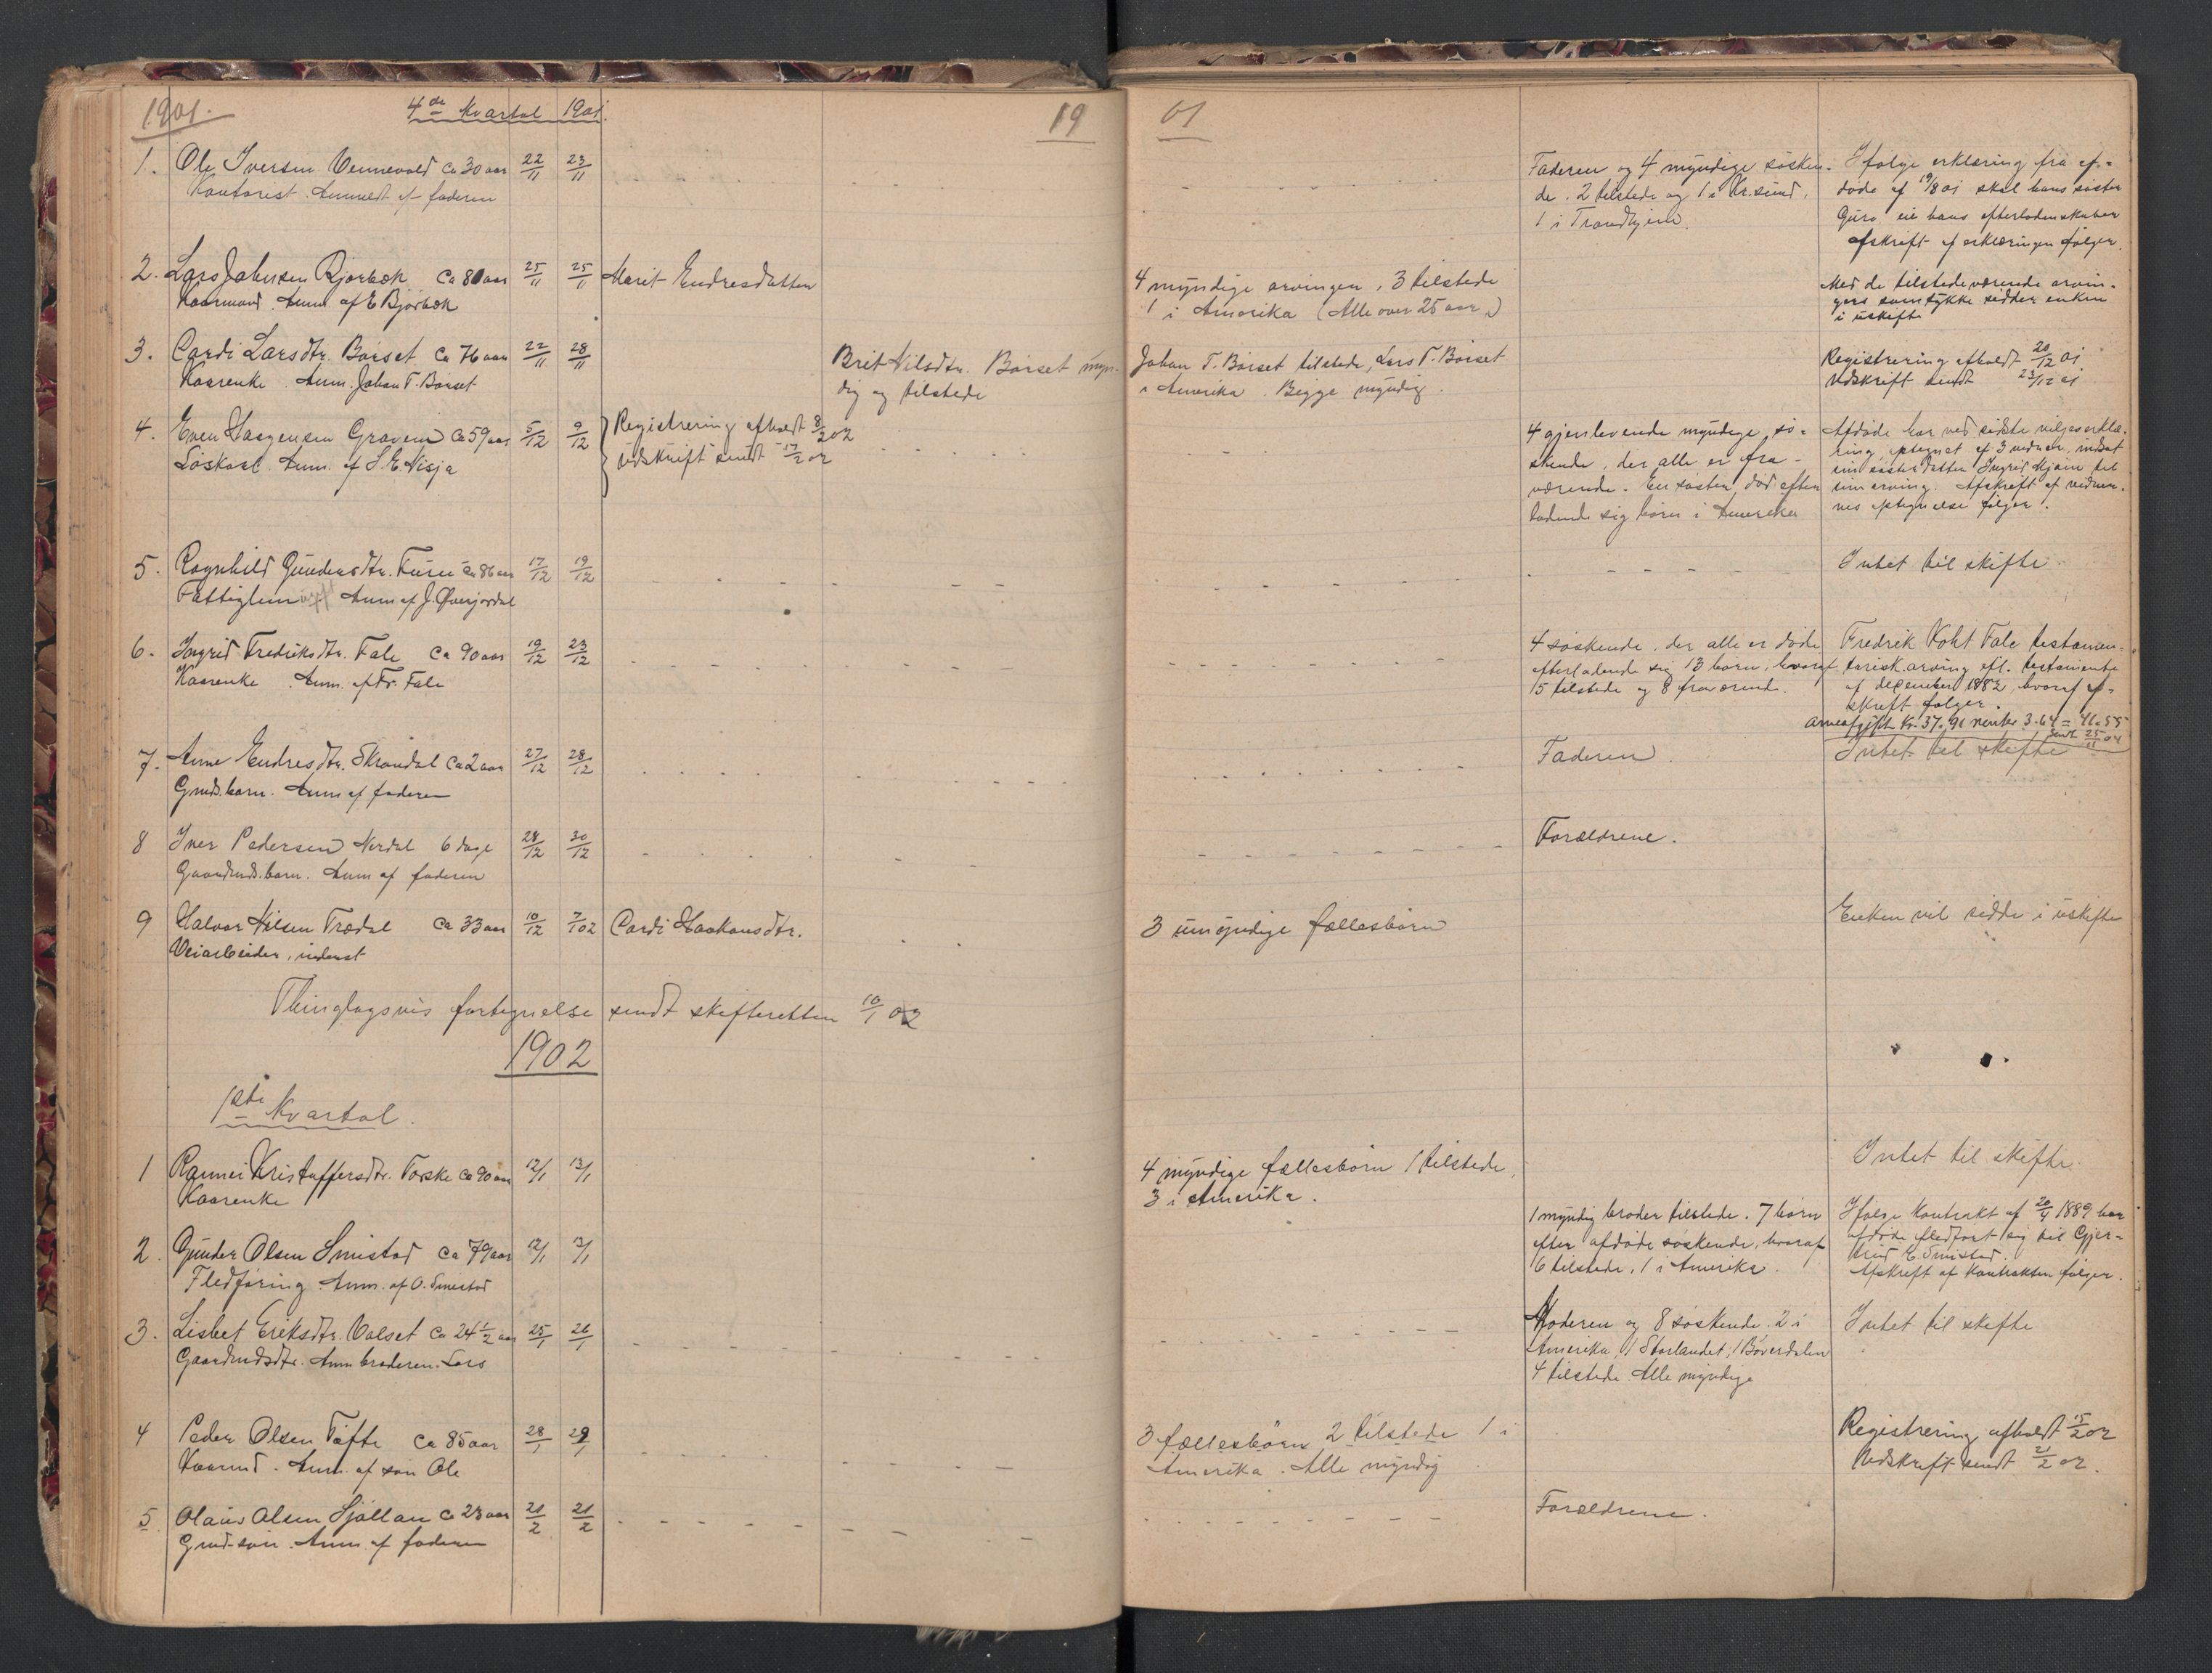 1901. 4de Kvartal 1901. 19 01
1. Ole Iversen Vennevold Ca 30 aar 22/11 23/11 Faderen og 4 myndige sösken- Ifölge erklæring fra af-
Kontorist. Anmeldt af faderen de. 2 tilstede og 1 i Kr.sund, döde af 19/8 01 skal hans söster
1 i Trondhjem. Guro eie hans efterladenskaber
afskrift af erklæringen fölger.
2. Lars Johnsen Bjørbæk Ca 80 aar 25/11 25/11 Marit Endresdatter 4 myndige arvinger, 3 tilstede Med de tilstedeværende arvin-
Kaarmand. Anm. af E Bjørbæk 1 i Amerika (Alle over 25 aar) gers samtykke sidder enken
i uskifte
3. Gardi Larsdtr. Börset Ca 76 aar 22/11 28/11 Brit Nilsdtr. Börset myn- Johan T. Börset tilstede, Lars T. Börset Registrering afholdt 20/12 01
Kaarenke. Anm. Johan T. Börset dig og tilstede i Amerika. Begge myndig. Udskrift sendt 23/12 01
4. Even Haagensen Gravem Ca 59 aar 5/12 9/12 Registrering afholdt 8/2 02 4 gjenlevende myndige, sö- Afdöde har ved sidste viljeserklæ-
Löskarl. Anm. af S. E. Nisja Udskrift sendt 17/2 02 skende, der alle er fra- ring, optegnet af 3 vidner, indsat
værende. En söster död efter sin sösterdatter Ingrid Mjöen til
ladende sig börn i Amerika sin arving. Afskrift af vidner-
nes optegnelse fölger.
5. Ragnhild Gundersdtr. Furu Ca 86 aar 17/12 19/12 Intet til skifte.
Fattiglem Anm af J. Øverjordal
6. Ingrid Fredriksdtr. Fale Ca 90 aar 19/12 23/12 4 söskende, der alle er döde Fredrik Voht Fale testamen-
Kaarenke. Anm. af Fr. Fale efterladende sig 13 börn, hvoraf tarisk arving efl. testamente
15 tilstede og 8 fraværende. af december 1882, hvoraf af-
skrift fölger.
Arveafgift Kr. 37.91 renter 3.64 = 41.55
sendt 25/11 04
7. Anne Endresdtr. Skrondal Ca 2 aar 27/12 28/12 Faderen. Intet til skifte
Gmds.barn. Anm af faderen
8 Iver Pedersen Nerdal 6 dage 28/12 30/12 Forældrene.
Gaardmds.barn. Anm af faderen
9 Halvor Nilsen Trædal Ca 33 aar 10/12 7/1 02 Gardi Haakonsdtr. 3 umyndige fællesbörn Enken vil sidde i uskifte
Veiarbeider, inderst
Thinglagsvis fortegnelse sendt skifteretten 10/1 02
1902
1ste Kvartal.
1 Rannei Kristoffersdtr. Torske Ca 90 aar 12/1 13/1 4 myndige fællesbörn 1 tilstede, Intet til skifte.
Kaarenke 3 i Amerika.
2. Gunder Olsen Smistad Ca 79 aar 12/1 13/1 1 myndig broder tilstede. 7 börn Ifölge Kontrakt af 20/4 1889 har
Fledföring. Anm. af O. Smestad efter afdöde söskende, hvoraf afdöde fledfört sig til Gjer-
6 tilstede, 1 i Amerika. trud E. Smistad.
Afskrift af Kontrakten fölger.
3. Lisbet Eriksdtr. Valset Ca 24 1/2 aar 25/1 26/1 Moderen og 8 söskende. 2 i Intet til skifte
Gaardmdsdtr. Anm broderen Lars Amerika, 1 Storlandet, 1 Böverdalen
4 tilstede. Alle myndige
4 Peder Olsen Töfte Ca 85 aar 28/1 29/1 3 fællesbörn 2 tilstede 1 i Registrering afholdt 15/2 02
Kaarmd. Anm. af sön Ole Amerika. Alle myndig Udskrift sendt 21/2 02.
5 Olaus Olsen Sjöllan Ca 23 aar 21/2 21/2 Forældrene.
Gmd-sön. Anm. af faderen